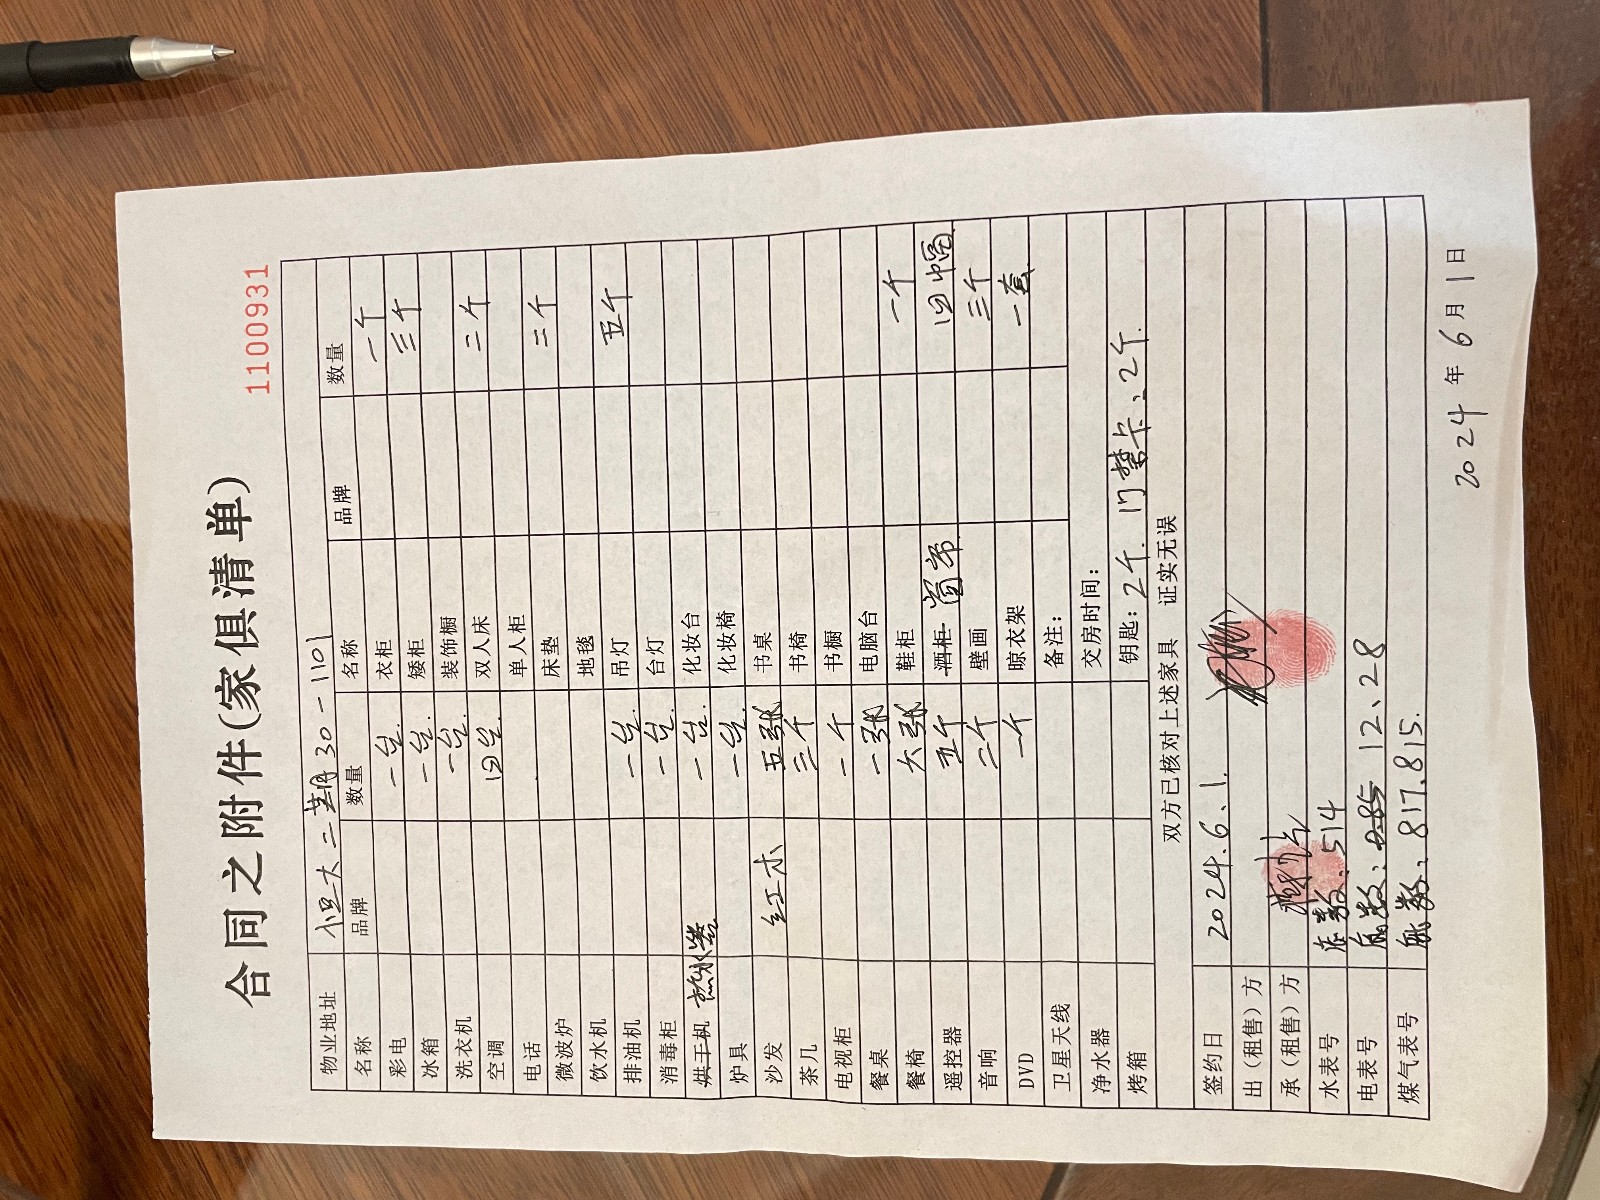 1100931
合同之附件(家俱清单)
物业地址 恒大二期30-1101
名称 品牌 数量 名称 品牌 数量
彩电 一台. 衣柜 一个
冰箱 一台. 矮柜 三个
洗衣机 一台. 装饰橱
空调 四台 双人床 二个
电话 单人柜
微波炉 床垫 二个
饮水机 地毯
排油机 一台. 吊灯 五个
消毒柜 一台. 台灯
烘干机 热水器 一台. 化妆台
炉具 一台. 化妆椅
沙发 红木 五张 书桌
茶几 三个 书椅
电视柜 一个 书橱
餐桌 一张 电脑台
餐椅 六张 鞋柜 一个
遥控器 五个 酒柜 窗帘 四幅
音响 二个 壁画 三个
DVD 一个 晾衣架 一套
卫星天线 备注:
净水器 交房时间:
烤箱 钥匙: 2个. 门禁卡、2个.
双方已核对上述家具 证实无误
签约日 2024.6.1
出(租售)方
承(租售)方
水表号 底数: 514
电表号 底数: 0.85 12、28
煤气表号 底数: 817.815.
2024年6月1日